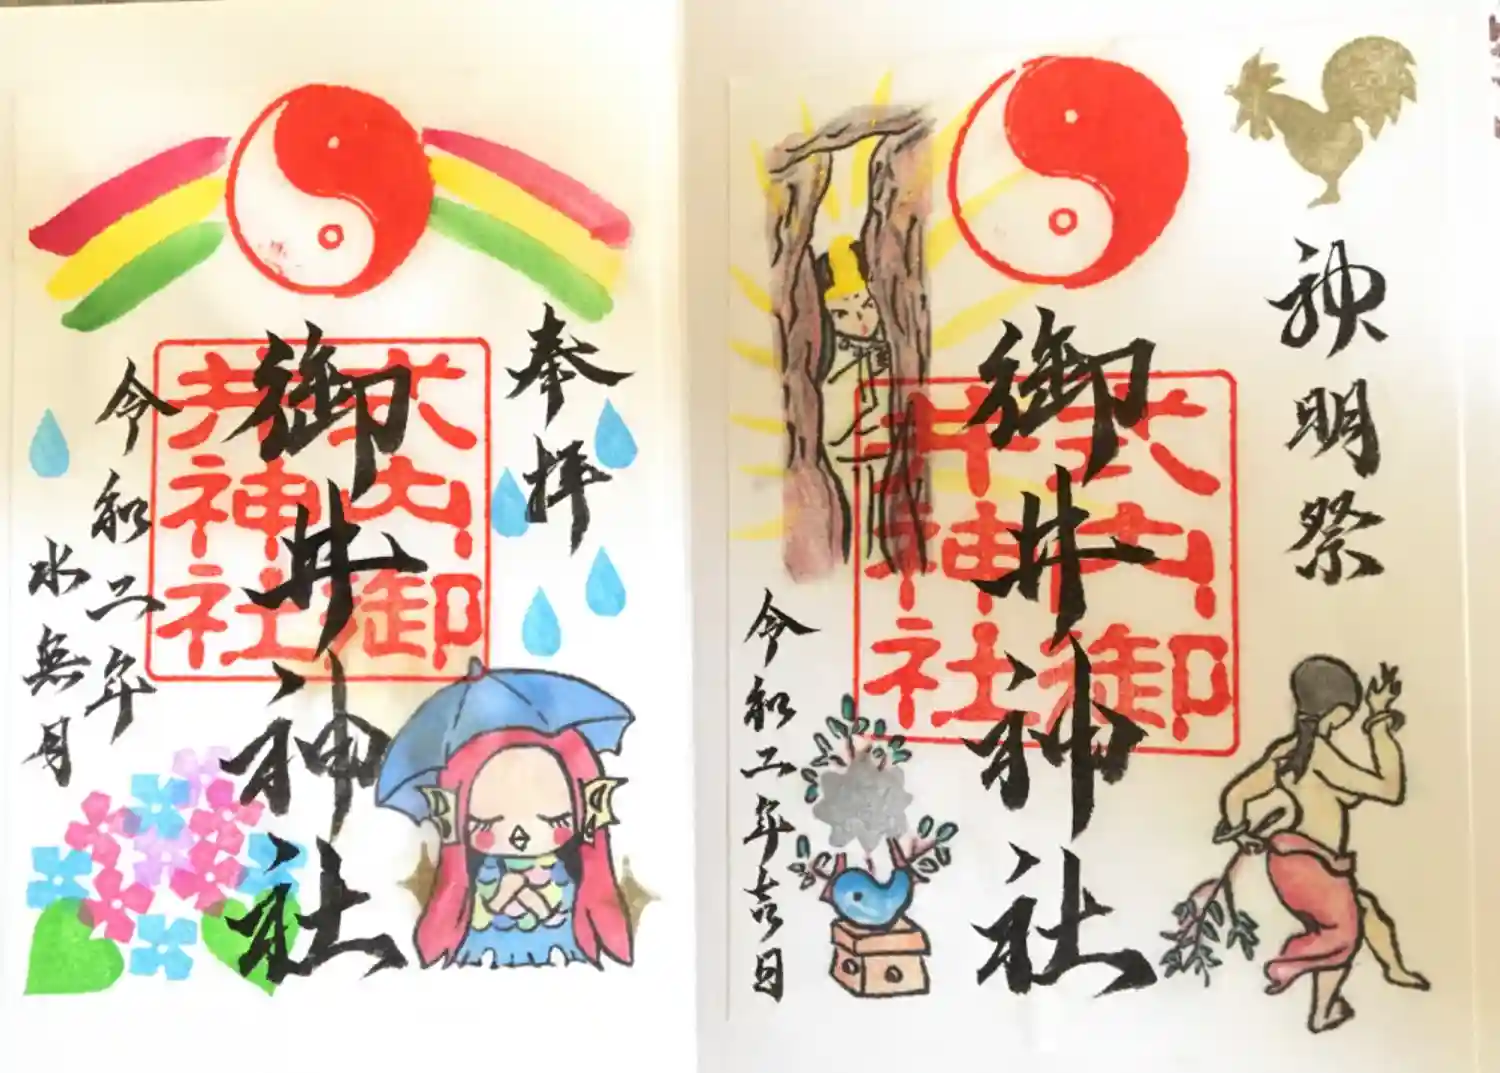 奉拝
御井神社
式内御
井神社
令和二年
水無月
神明祭
御井神社
式内御
井神社
令和二年吉日